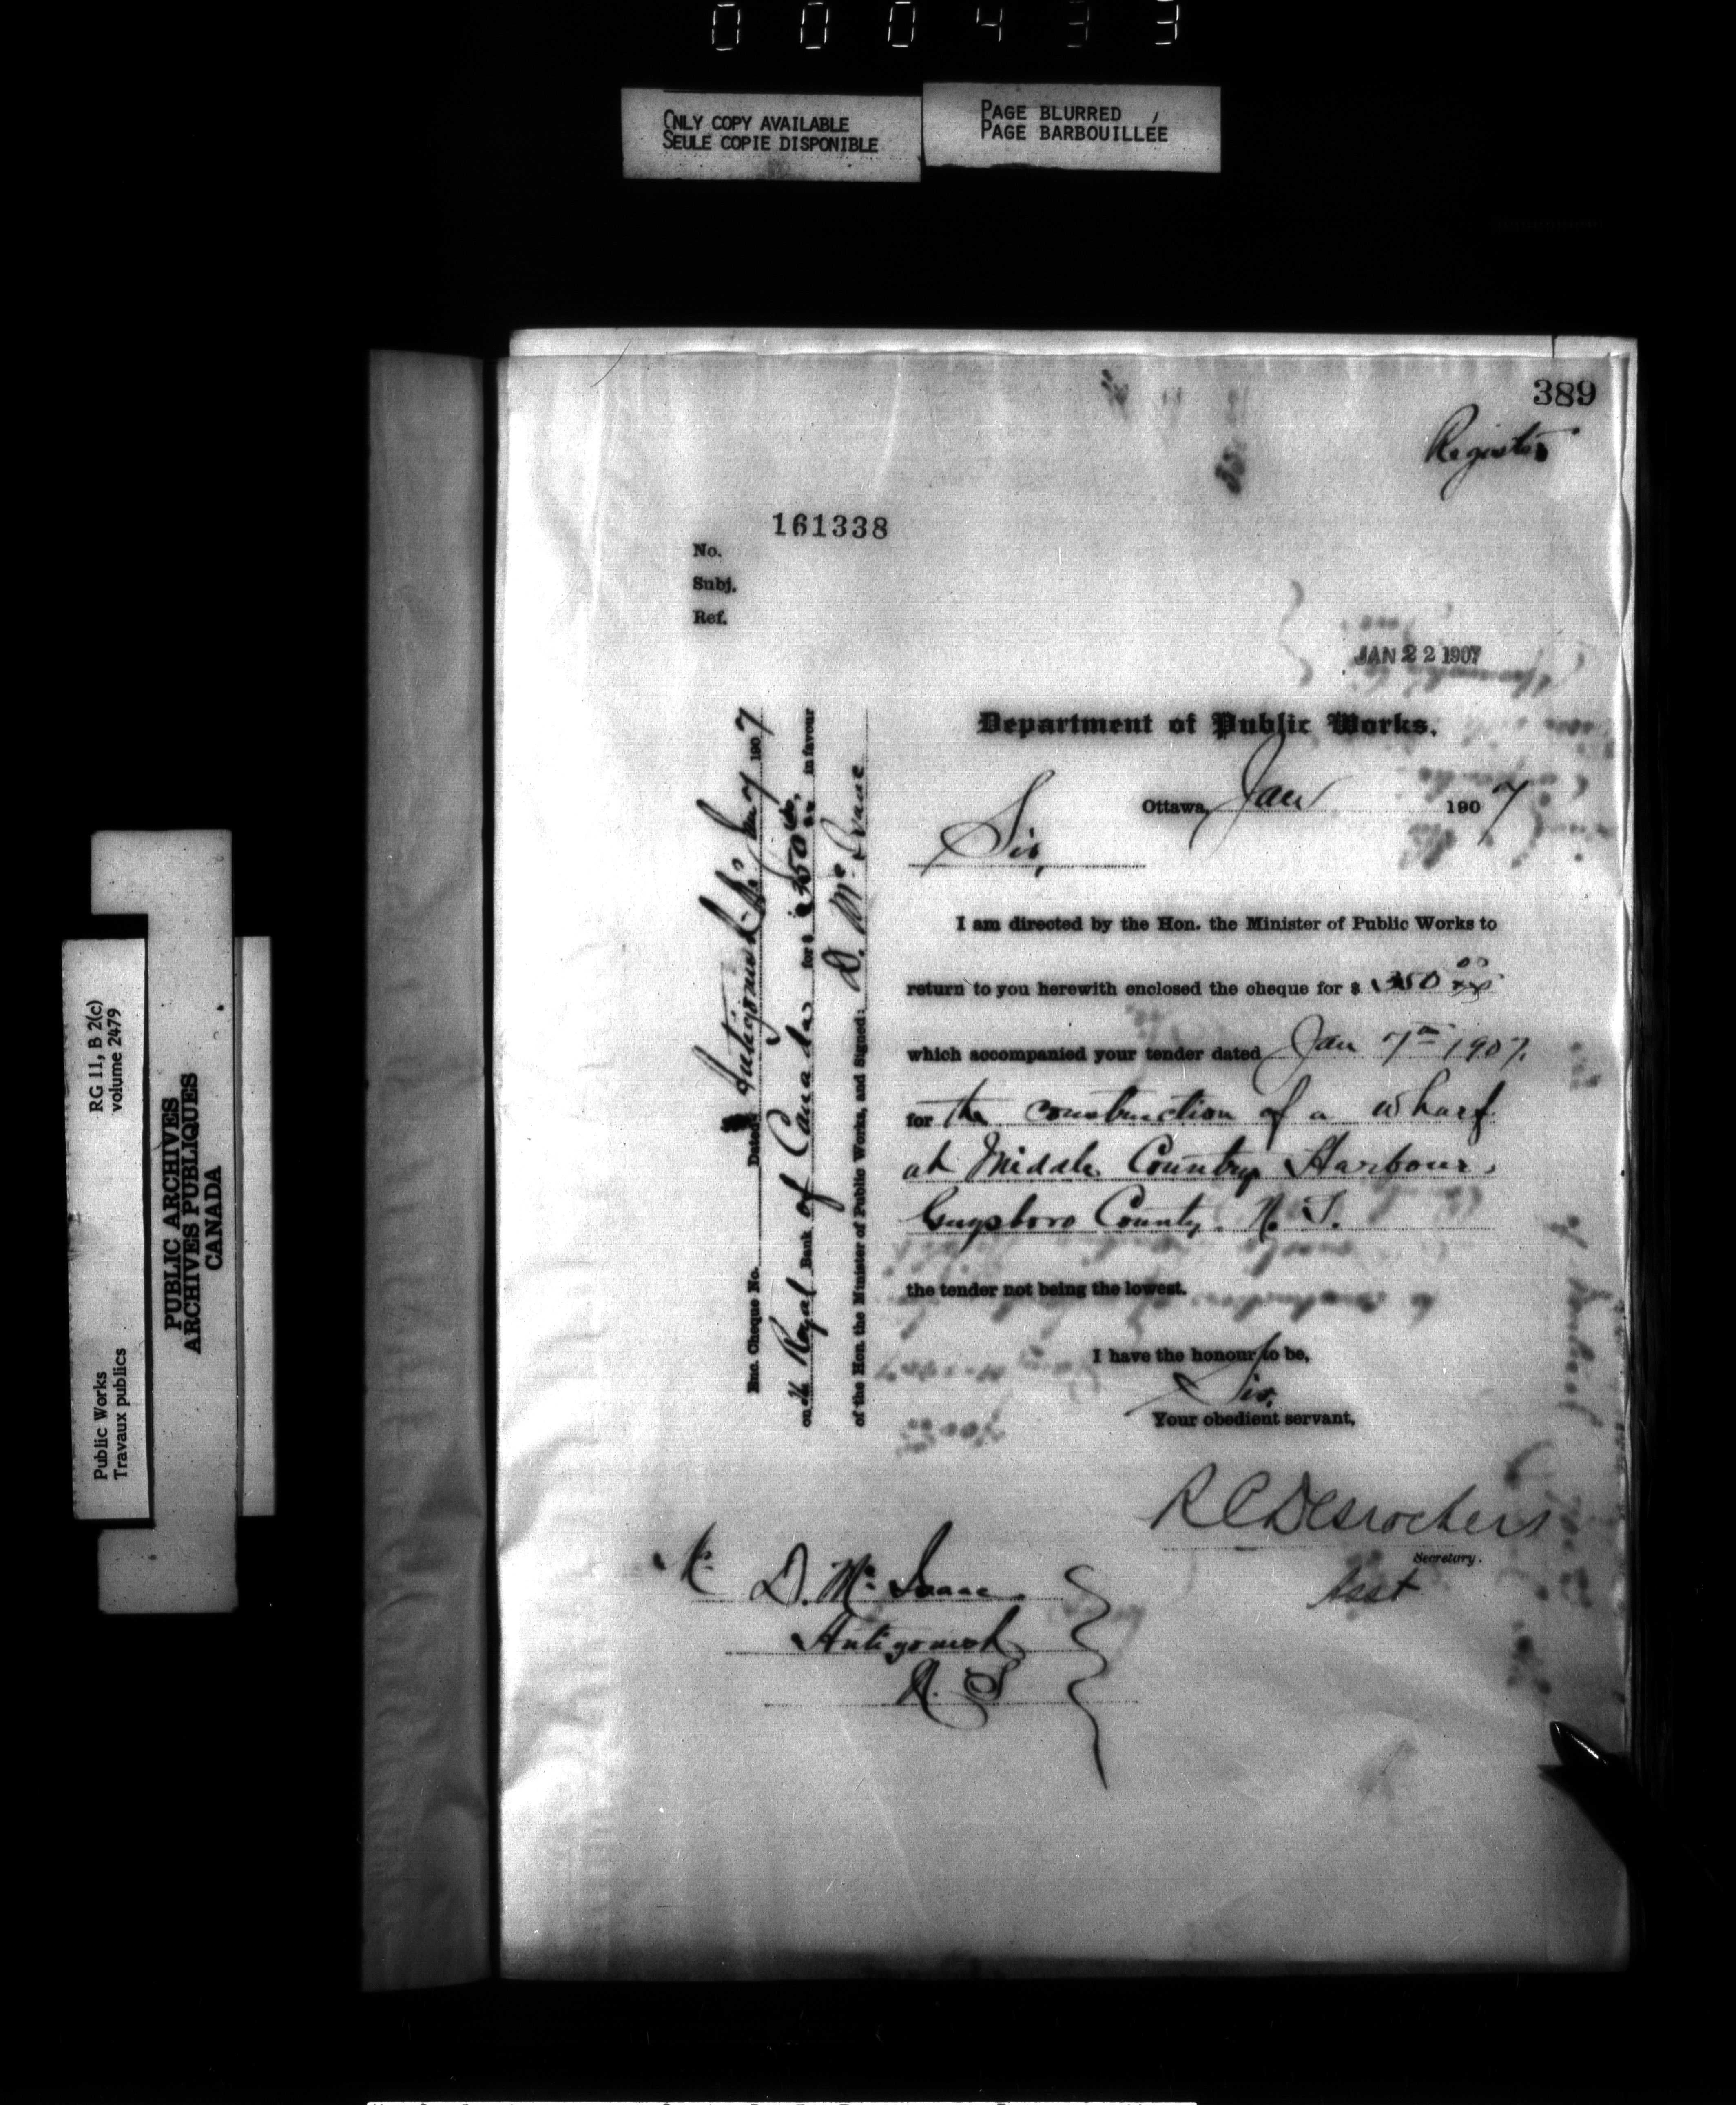 000433
ONLY COPY AVAILABLE
SEULE COPIE DISPONIBLE
PAGE BLURRED
PAGE BARBOUILLÉE
389
Register
161338
No.
Subj.
Ref.
JAN 22 1907
Department of Public Works.
Ottawa, Jan 1907
Sir,
I am directed by the Hon. the Minister of Public Works to
return to you herewith enclosed the cheque for $ 350 00/xx
which accompanied your tender dated Jan 7th 1907.
for the construction of a wharf
at Middle Country Harbour,
Guysboro County. N. S.
the tender not being the lowest.
I have the honour to be,
Sir,
Your obedient servant,
R C Desrochers
Secretary.
Asst
D. Mc Isaac
Antigonish
N. S
Enc. Cheque No. Dated Antigonish Jany 7 1907
on the Royal Bank of Canada for $ 350 in favour
of the Hon. the Minister of Public Works, and Signed: D. Mc Isaac
RG 11, B 2(c)
volume 2479
Public Works
Travaux publics
PUBLIC ARCHIVES
ARCHIVES PUBLIQUES
CANADA